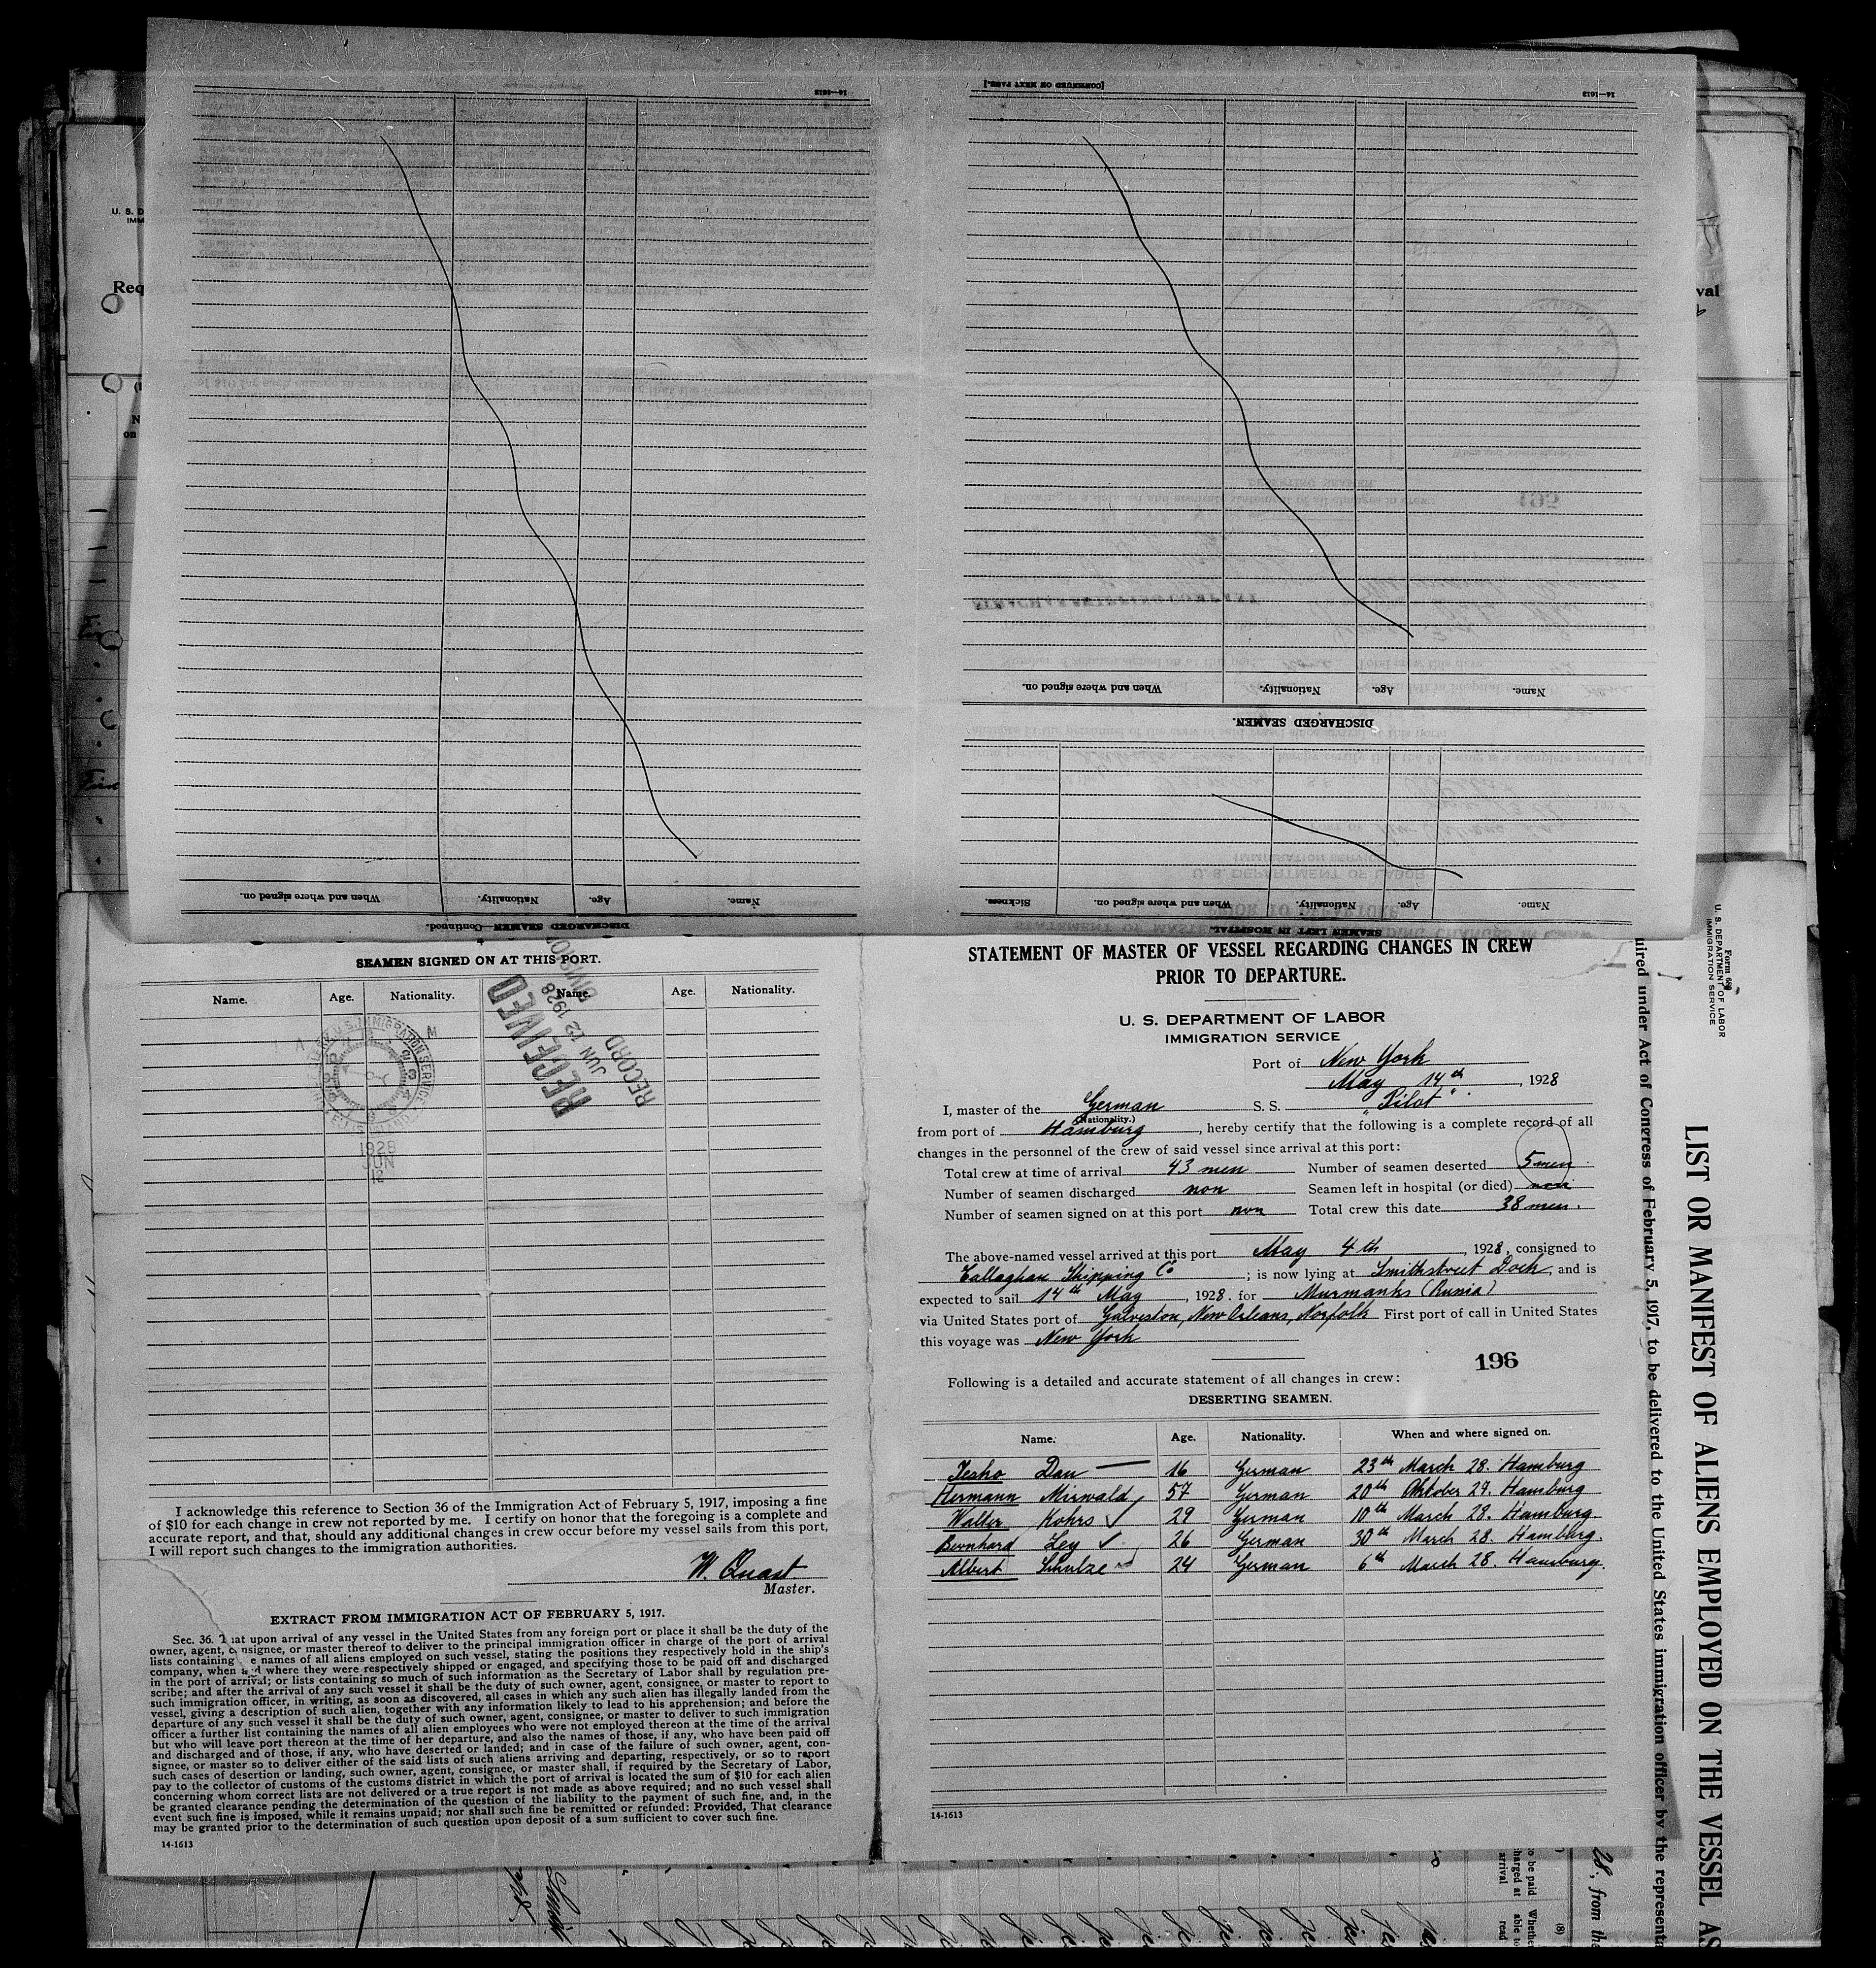 [CONTINUED ON NEXT PAGE.]
14—1613
14—1613
DISCHARGED SEAMEN.
Name. Age. Nationality. When and where signed on.
SEAMEN LEFT IN HOSPITAL.
Name. Age. Nationality. When and where signed on. Sickness.
DISCHARGED SEAMEN—Continued.
Name. Age. Nationality. When and where signed on.
SEAMEN SIGNED ON AT THIS PORT.
Name. Age. Nationality. Name. Age. Nationality.
U.S. IMMIGRATION SERVICE
1928
JUN
12
RECEIVED
JUN 12 1928
RECORD
I acknowledge this reference to Section 36 of the Immigration Act of February 5, 1917, imposing a fine
of $10 for each change in crew not reported by me. I certify on honor that the foregoing is a complete and
accurate report, and that, should any additional changes in crew occur before my vessel sails from this port,
I will report such changes to the immigration authorities.
W. Quast
Master.
EXTRACT FROM IMMIGRATION ACT OF FEBRUARY 5, 1917.
Sec. 36. That upon arrival of any vessel in the United States from any foreign port or place it shall be the duty of the
owner, agent, consignee, or master thereof to deliver to the principal immigration officer in charge of the port of arrival
lists containing the names of all aliens employed on such vessel, stating the positions they respectively hold in the ship's
company, when and where they were respectively shipped or engaged, and specifying those to be paid off and discharged
in the port of arrival; or lists containing so much of such information as the Secretary of Labor shall by regulation pre-
scribe; and after the arrival of any such vessel it shall be the duty of such owner, agent, consignee, or master to report to
such immigration officer, in writing, as soon as discovered, all cases in which any such alien has illegally landed from the
vessel, giving a description of such alien, together with any information likely to lead to his apprehension; and before the
departure of any such vessel it shall be the duty of such owner, agent, consignee, or master to deliver to such immigration
officer a further list containing the names of all alien employees who were not employed thereon at the time of the arrival
but who will leave port thereon at the time of her departure, and also the names of those, if any, who have been paid off
and discharged and of those, if any, who have deserted or landed; and in case of the failure of such owner, agent, con-
signee, or master so to deliver either of the said lists of such aliens arriving and departing, respectively, or so to report
such cases of desertion or landing, such owner, agent, consignee, or master shall, if required by the Secretary of Labor,
pay to the collector of customs of the customs district in which the port of arrival is located the sum of $10 for each alien
concerning whom correct lists are not delivered or a true report is not made as above required; and no such vessel shall
be granted clearance pending the determination of the question of the liability to the payment of such fine, and, in the
event such fine is imposed, while it remains unpaid; nor shall such fine be remitted or refunded: Provided, That clearance
may be granted prior to the determination of such question upon deposit of a sum sufficient to cover such fine.
14-1613
STATEMENT OF MASTER OF VESSEL REGARDING CHANGES IN CREW
PRIOR TO DEPARTURE.
U. S. DEPARTMENT OF LABOR
IMMIGRATION SERVICE
Port of New York
May 14th, 1928
I, master of the German S. S. "Pilot".
(Nationality.)
from port of Hamburg, hereby certify that the following is a complete record of all
changes in the personnel of the crew of said vessel since arrival at this port:
Total crew at time of arrival 43 men Number of seamen deserted 5 men
Number of seamen discharged non Seamen left in hospital (or died) non
Number of seamen signed on at this port non Total crew this date 38 men.
The above-named vessel arrived at this port May 4th, 1928, consigned to
Callaghan Shipping Co; is now lying at Smithstreet Dock, and is
expected to sail 14th May, 1928. for Murmanks (Russia)
via United States port of Galveston, New Orleans, Norfolk First port of call in United States
this voyage was New York
196
Following is a detailed and accurate statement of all changes in crew:
DESERTING SEAMEN.
Name. Age. Nationality. When and where signed on.
Dau 16 German 23th March 28. Hamburg
Hermann Mirwald 57 German 20th Oktober 27. Hamburg
Walter Kohrs 29 German 10th March 28. Hamburg
Bernhard Ley 26 German 30th March 28. Hamburg.
Albert Schulze 24 German 6th March 28. Hamburg.
14-1613
Form 680
U. S. DEPARTMENT OF LABOR
IMMIGRATION SERVICE
LIST OR MANIFEST OF ALIENS EMPLOYED ON THE VESSEL AS
uired under Act of Congress of February 5, 1917, to be delivered to the United States immigration officer by the representa
28, from the
(8)
Whether
able to
read
to be paid
harged at
arrival
U. S. D
IMM
Req
val